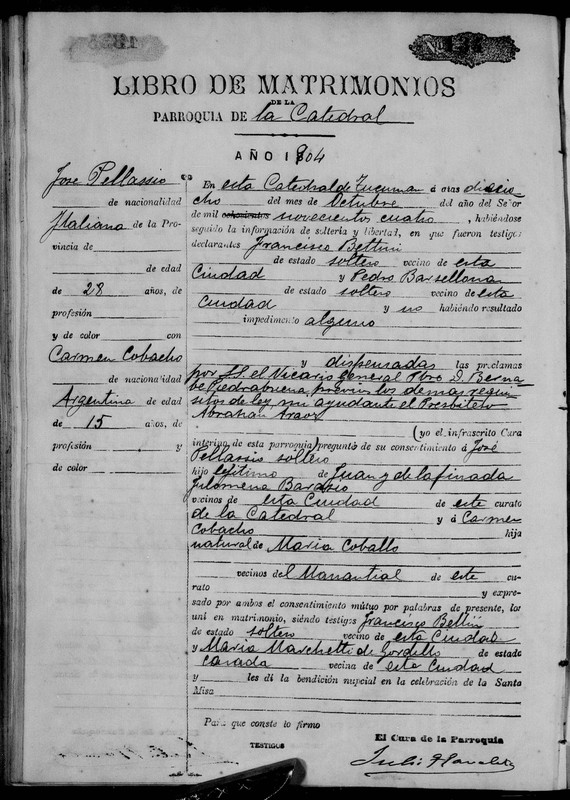 Nº
LIBRO DE MATRIMONIOS
DE LA
PARROQUIA DE la Catedral
AÑO 1904
José Pellassio
de nacionalidad
Italiana de la Pro-
vincia de
de edad
de 28 años, de
profesión
y de color con
Carmen Cobacho
de nacionalidad
Argentina de edad
de 15 años, de
profesión y
de color
En esta Catedral de Tucuman á dias diecio
cho del mes de Octubre del año del Señor
de mil ochocientos novecientos cuatro, habiéndose
seguido la información de soltería y libertad, en que fueron testigos
declarantes Francisco Bettini
de estado soltero vecino de esta
Ciudad y Pedro Barsellona
de estado soltero vecino de esta
Ciudad y no habiendo resultado
impedimento alguno
y dispensadas las proclamas
por S.S. el Vicario General Pbro D. Berna
be Piedrabuena, previos los demas requi
sitos de ley, mi ayudante el Presbitero
Abrahan Araoz
(yo el infrascrito Cura
interino de esta parroquia) preguntó de su consentimiento á José
Pellassio soltero
hijo lejitimo de Juan y de la finada
Filomena
vecinos de esta Ciudad de este curato
de la Catedral y á Carmen
Cobacho hija
natural de Maria Coballo
vecinos del Manantial de este cu-
rato y expre-
sado por ambos el consentimiento mútuo por palabras de presente, los
uní en matrimonio, siéndo téstigos Francisco Bettini
de estado soltero vecino de esta Ciudad
y Maria Marchetti de Gordillo de estado
casada vecina de esta Ciudad
y les dí la bendición nupcial en la celebración de la Santa
Misa
Para que conste lo firmo
El Cura de la Parroquia
TESTIGOS